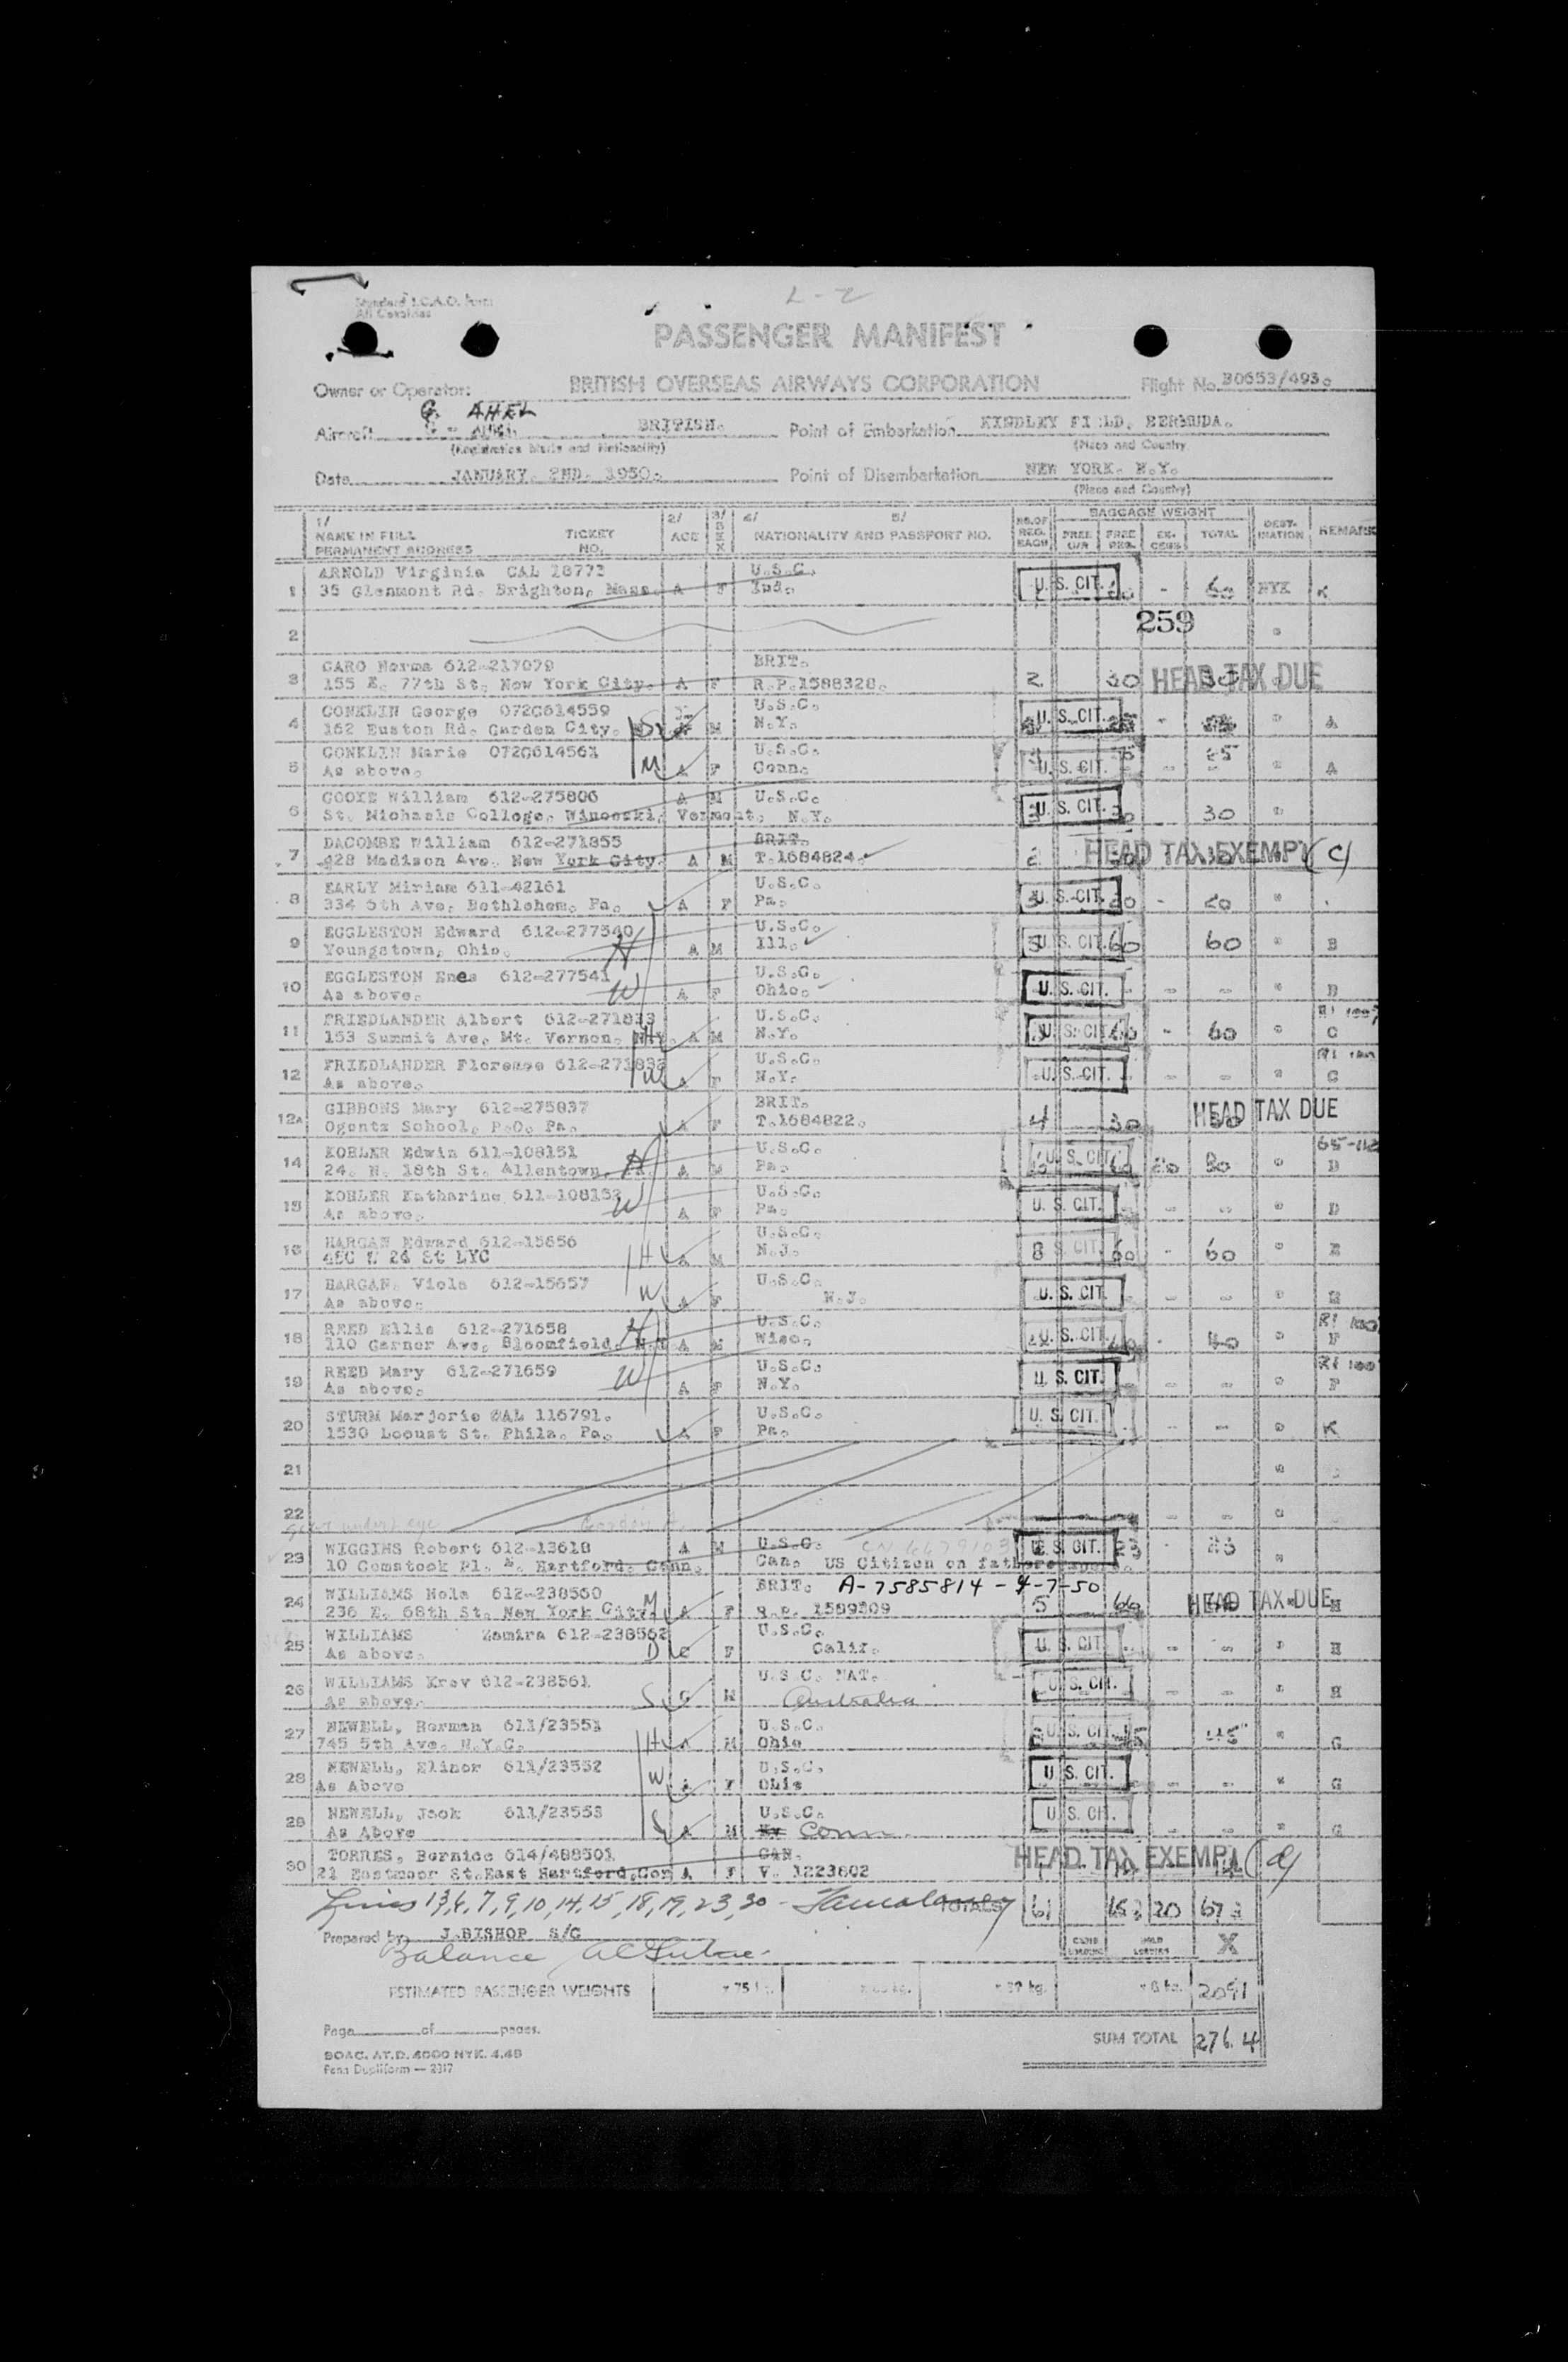 L-2
Standard I.C.A.O. Form
PASSENGER MANIFEST
Owner or Operator: BRITISH OVERSEAS AIRWAYS CORPORATION Flight No. B0653/493.
G. AHEL
Aircraft BRITISH. Point of Embarkation KINDLEY FIELD, BERMUDA.
(Registration Marks and Nationality) (Place and Country)
Date JANUARY. 2ND. 1950. Point of Disembarkation NEW YORK. N.Y.
(Place and Country)
1/ 2/ 3/ 4/ 5/ NO. OF REG. BAGS BAGGAGE WEIGHT DESTINATION REMARKS
NAME IN FULL TICKET NO. AGE SEX NATIONALITY AND PASSPORT NO. FREE U/R FREE REG. EXCESS TOTAL
PERMANENT ADDRESS
1 ARNOLD Virginia CAL 18773 U.S.C.
35 Glenmont Rd. Brighton, Mass. A F Ind. U. S. CIT. - 60 NYK K
2 259
3 CARO Norma 612-217079 BRIT.
155 E. 77th St. New York City. A F R.P.1588328. 2 30 HEAD TAX DUE
4 CONKLIN George 072C614559 U.S.C.
152 Euston Rd. Garden City. M N.Y. U. S. CIT. - " A
5 CONKLIN Marie 072C614561 U.S.C. 25
As above. M A F Conn. U. S. CIT. - - " A
6 COOKE William 612-275806 A M U.S.C.
St. Michaels College, Winooski, Vermont. N.Y. U. S. CIT. 30 30 "
7 DACOMBE William 612-271855 BRIT.
428 Madison Ave. New York City. A M T.1684824 2 HEAD TAX EXEMPT (C)
8 EARLY Miriam 611-42161 U.S.C.
334 5th Ave. Bethlehem. Pa. A F Pa. U. S. CIT. 20 - 20 "
9 EGGLESTON Edward 612-277540 U.S.C.
Youngstown, Ohio. H A M Ill. U. S. CIT. 60 60 " B
10 EGGLESTON Enes 612-277541 U.S.C.
As above. W A F Ohio. U. S. CIT. - - " B
11 FRIEDLANDER Albert 612-271833 U.S.C.
153 Summit Ave. Mt. Vernon. NY. H A M N.Y. U. S. CIT. 60 - 60 " C
12 FRIEDLANDER Florence 612-271832 U.S.C.
As above. W A F N.Y. U. S. CIT. - - " C
12A GIBBONS Mary 612-275837 BRIT.
Ogontz School, P.O. Pa. A F T.1684822. 4 30 HEAD TAX DUE
14 KOHLER Edwin 611-108151 U.S.C.
24. N. 18th St. Allentown. Pa. H A M Pa. U. S. CIT. 60 20 80 " D
15 KOHLER Katharine 611-108152 U.S.C.
As above. W A F Pa. U. S. CIT. - - " D
16 HARGAN Edward 612-15656 U.S.C.
H A M N.J. 8 S. CIT. 60 - 60 " E
17 HARGAN, Viola 612-15657 U.S.C.
As above. W A F N.J. U. S. CIT. - - " E
18 REED Ellis 612-271658 U.S.C.
110 Garner Ave. Bloomfield. N.J. H A M Wisc. U. S. CIT. 40 - 40 " F
19 REED Mary 612-271659 U.S.C.
As above. W A F N.Y. U. S. CIT. - - " F
20 STURM Marjorie CAL 116791. U.S.C.
1530 Locust St. Phila. Pa. A F Pa. U. S. CIT. - - " K
21 "
22 - - "
Gordon A.
23 WIGGINS Robert 612-13618 A M U.S.C. U. S. CIT. 23 - 23 "
10 Comstock Pl. E. Hartford. Conn. Can. US Citizen on fathers
24 WILLIAMS Nola 612-238560 BRIT. A-7585814 - 4-7-50
236 E. 68th St. New York City. M A F R.P. 1589509 5 66 HEAD TAX DUE H
25 WILLIAMS Zamira 612-238562 U.S.C.
As above. D C F Calif. U. S. CIT. - - " H
26 WILLIAMS Krov 612-238561 U.S.C. NAT.
As above. S C M Australia U. S. CIT. - - " H
27 NEWELL, Herman 611/23551 U.S.C.
745 5th Ave. N.Y.C. H A M Ohio U. S. CIT. 45 45 " G
28 NEWELL, Elinor 611/23552 U.S.C.
As Above W A F Ohio U. S. CIT. - - " G
29 NEWELL, Jack 611/23553 U.S.C.
As Above S A M Conn. U. S. CIT. - - " G
30 TORRES, Bernice 614/488501 CAN.
21 Eastmoor St. East Hartford, Con A F V. 1223602 HEAD TAX EXEMPT (d)
Lines 1,3,6,7,9,10,14,15,18,19,23,30 - TOTALS 61 20
Prepared by J.BISHOP S/C CABIN LOADING HOLD LOADING X
Balance
ESTIMATED PASSENGER WEIGHTS x 75 kg. x 65 kg. x 39 kg. x 8 kg. 2091
Page of pages. SUM TOTAL 276.4
BOAC. AT.D. 4000 NYK. 4.48
Fenn Dupliform — 2317